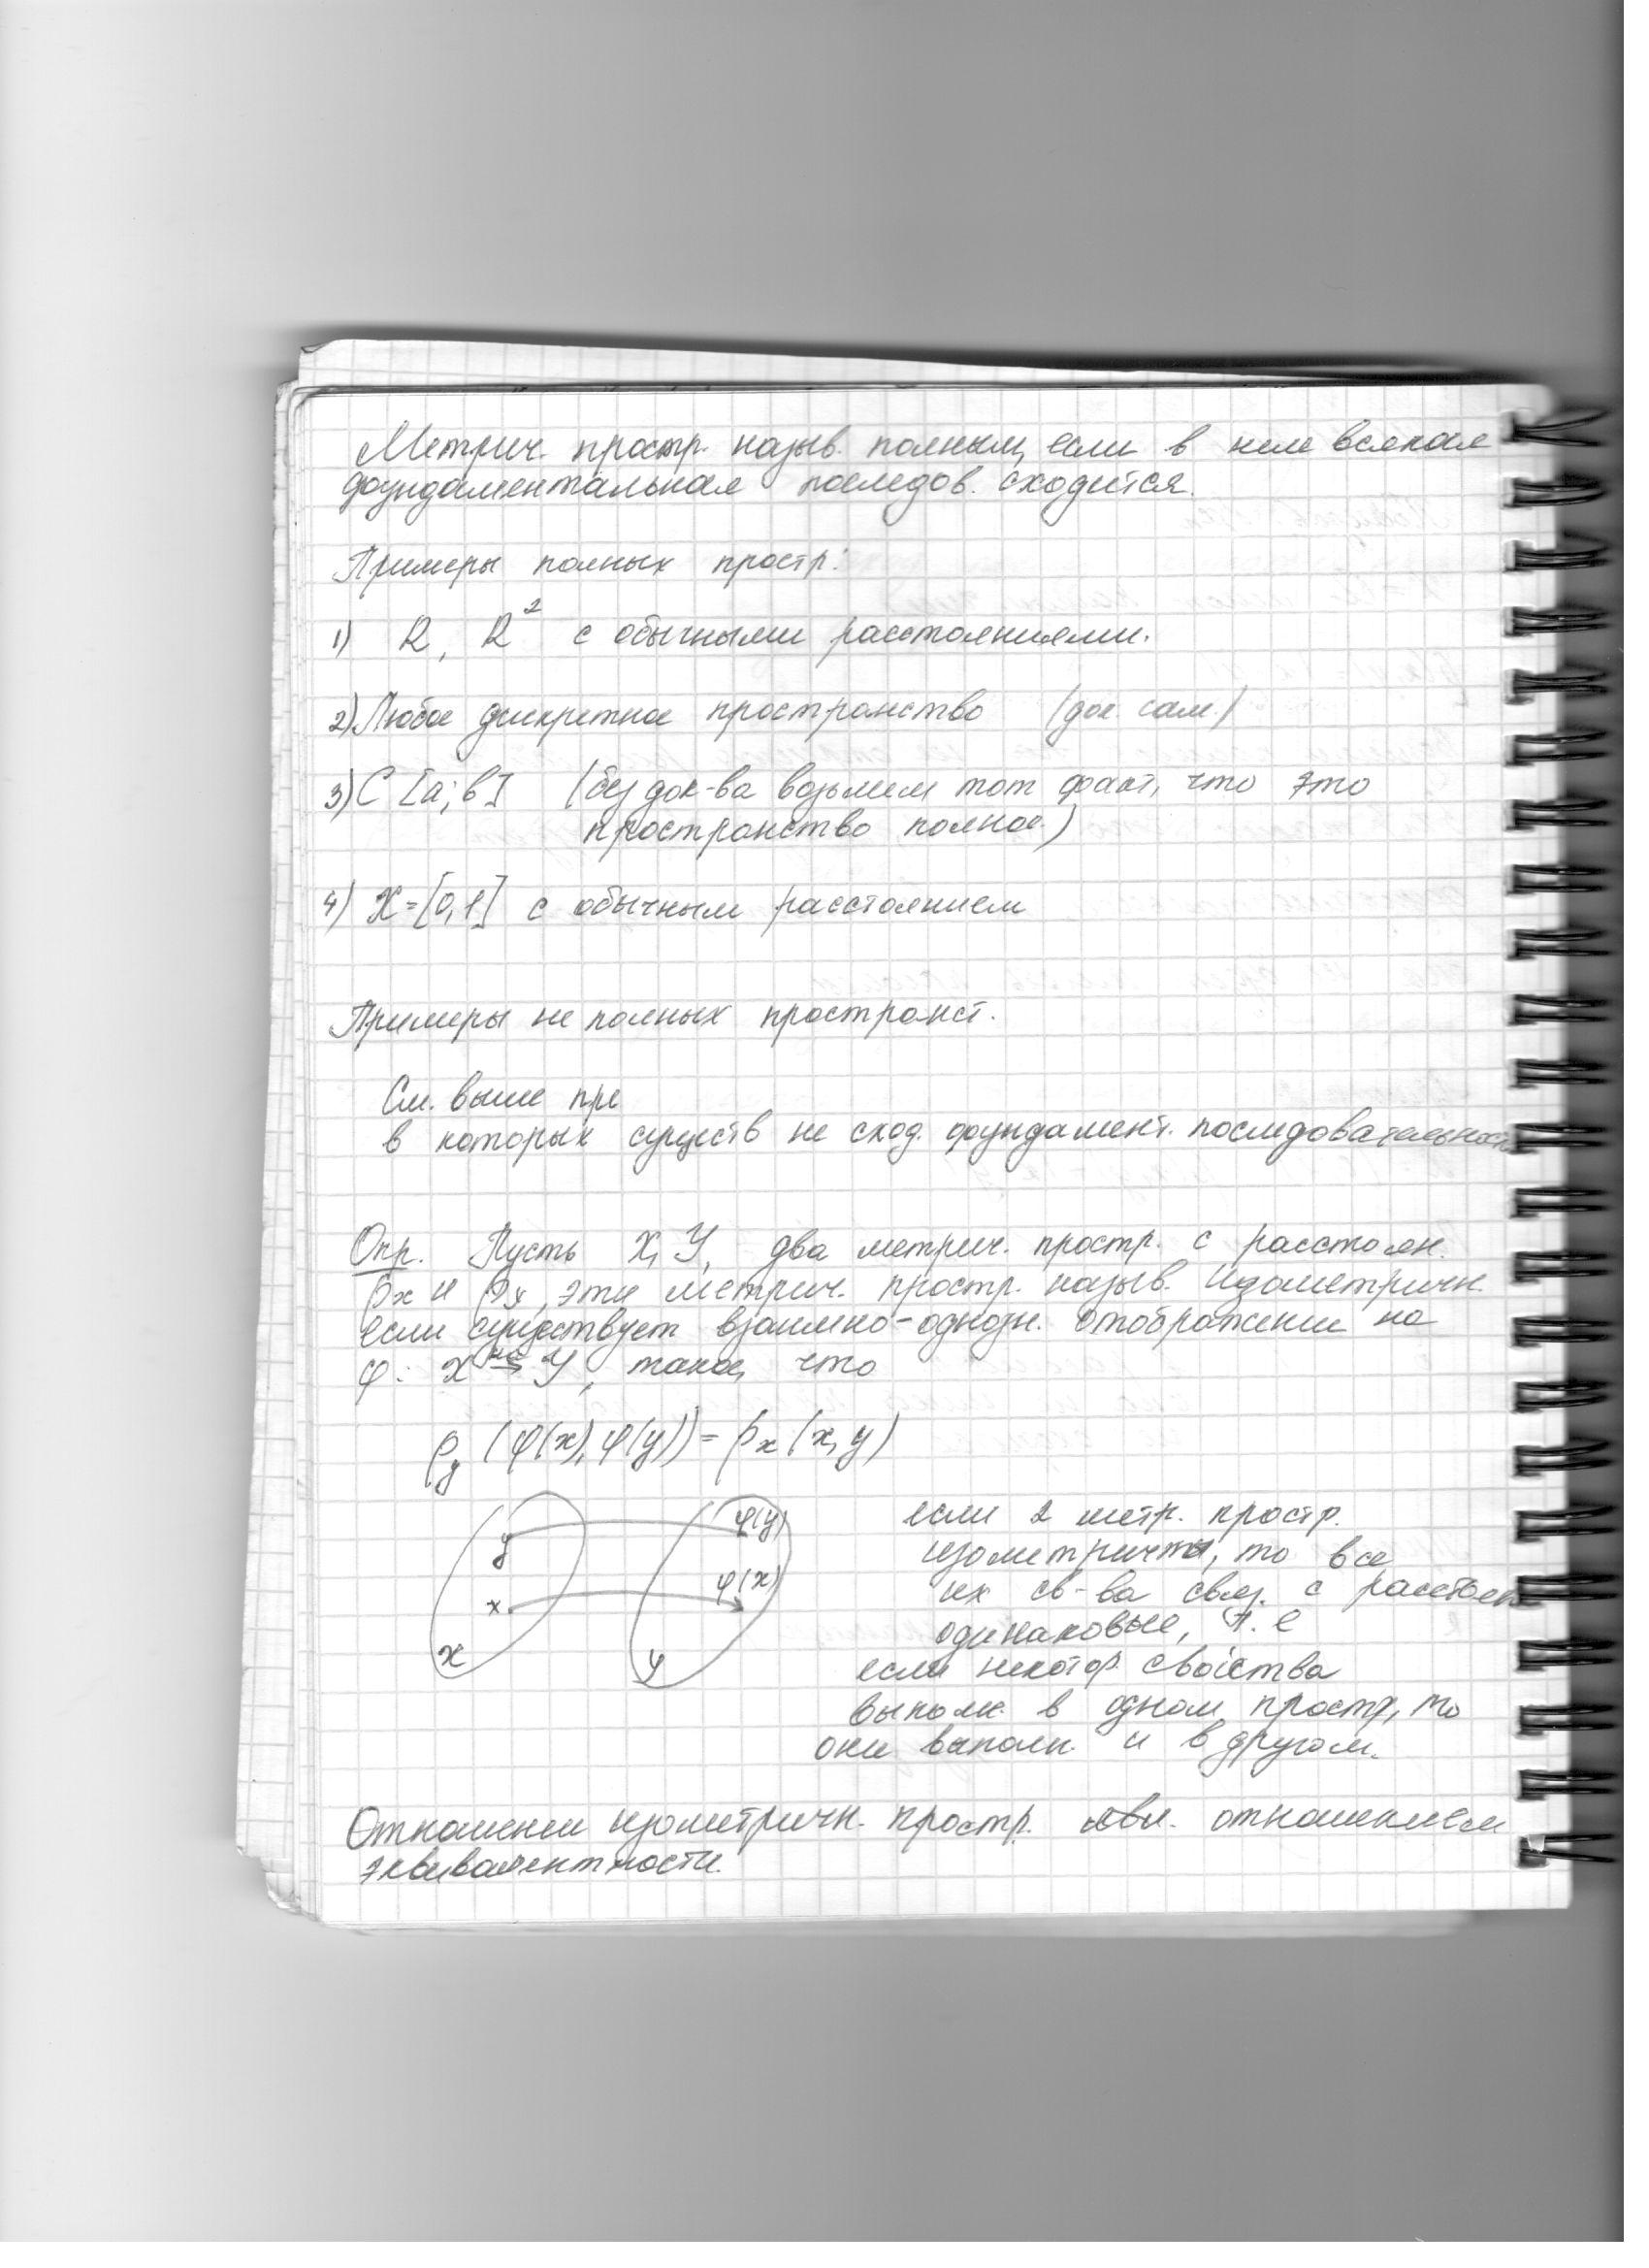 Метрич. простр. назыв. полным, если в нем всякая
фундаментальная последов. сходится.
Примеры полных простр:
1) R, R² с обычными расстояниями.
2) Любое дискретное пространство (док. сам.)
3) C [a; b] (без док-ва возьмем тот факт, что это
пространство полное.)
4) X = [0, 1] с обычным расстоянием
Примеры не полных пространст.
См. выше пр
в которых существ не сход. фундамент. последовательност
Опр. Пусть X, Y, два метрич. простр. с расстоян.
ρx и ρy, эти метрич. простр. назыв. изометричн.
если существует взаимно-однозн. отображение на
φ: X на→ Y, такое, что
ρy (φ(x), φ(y)) = ρx (x, y)
y φ(y)
x φ(x)
X Y
если 2 метр. простр.
изометричны, то все
их св-ва связ. с расстоян
одинаковые, т. е
если некотор. свойства
выполн. в одном простр, то
они выполн. и в другом.
Отношение изометричн. простр. явл. отношением
эквивалентности.